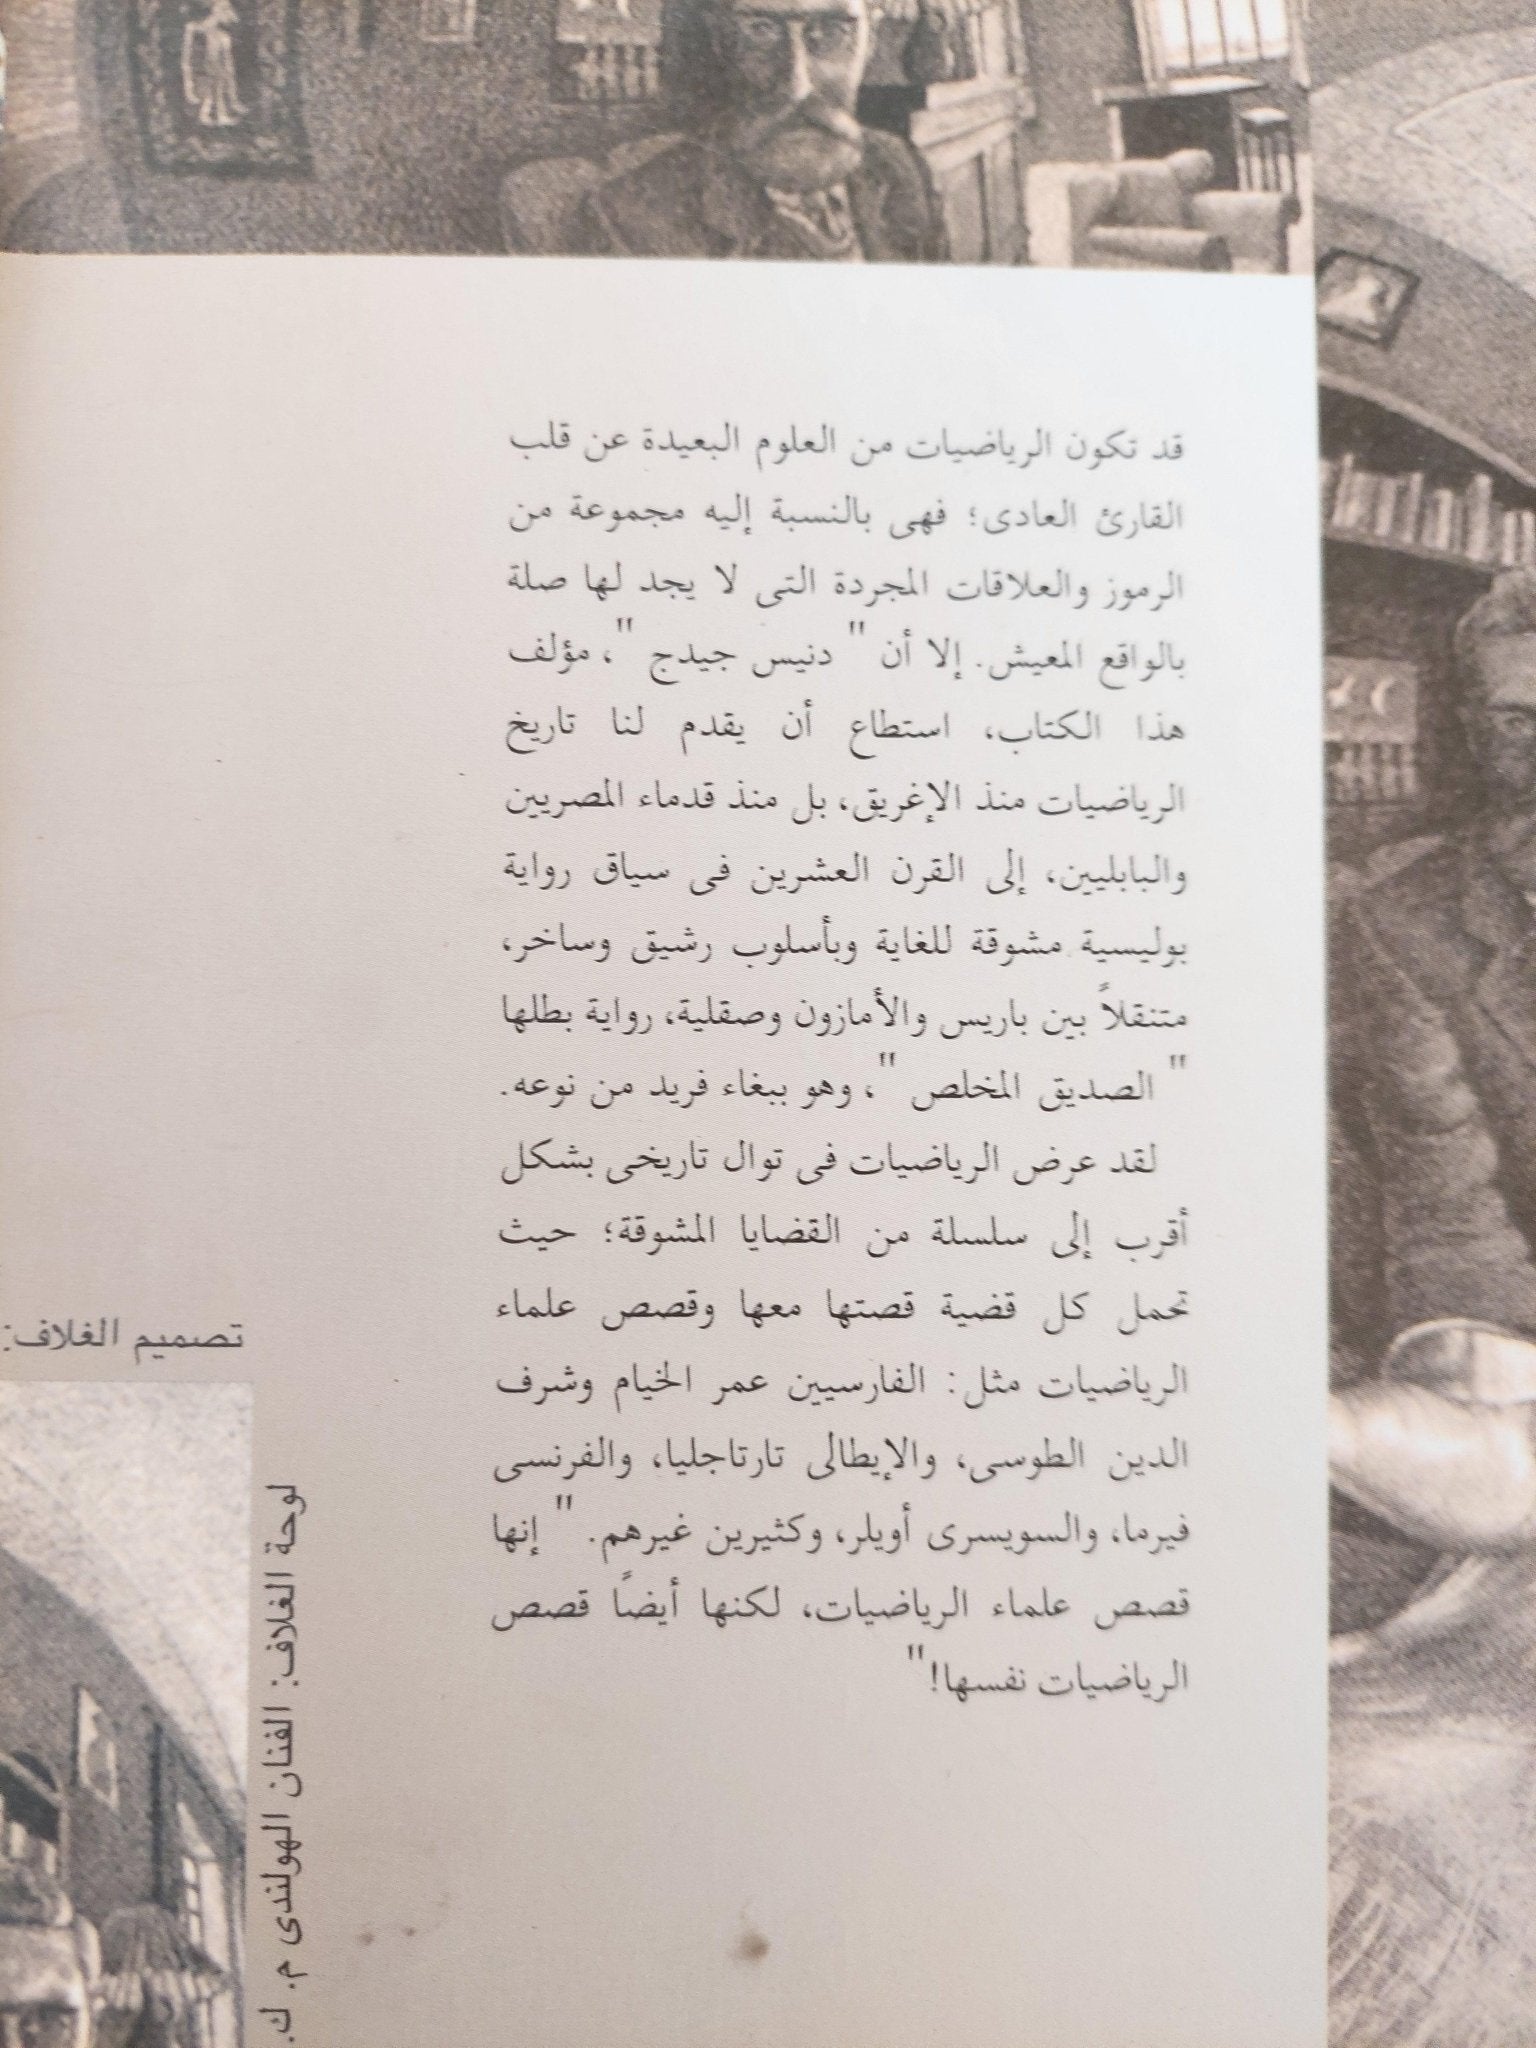 قد تكون الرياضيات من العلوم البعيدة عن قلب
القارئ العادى؛ فهى بالنسبة إليه مجموعة من
الرموز والعلاقات المجردة التى لا يجد لها صلة
بالواقع المعيش. إلا أن " دنيس جيدج "، مؤلف
هذا الكتاب، استطاع أن يقدم لنا تاريخ
الرياضيات منذ الإغريق، بل منذ قدماء المصريين
والبابليين، إلى القرن العشرين فى سياق رواية
بوليسية مشوقة للغاية وبأسلوب رشيق وساخر،
متنقلاً بين باريس والأمازون وصقلية، رواية بطلها
" الصديق المخلص "، وهو ببغاء فريد من نوعه.
لقد عرض الرياضيات فى توال تاريخى بشكل
أقرب إلى سلسلة من القضايا المشوقة؛ حيث
تحمل كل قضية قصتها معها وقصص علماء
الرياضيات مثل: الفارسيين عمر الخيام وشرف
الدين الطوسى، والإيطالى تارتاجليا، والفرنسى
فيرما، والسويسرى أويلر، وكثيرين غيرهم. " إنها
قصص علماء الرياضيات، لكنها أيضًا قصص
الرياضيات نفسها!"
تصميم الغلاف:
لوحة الغلاف: الفنان الهولندى م. ك.